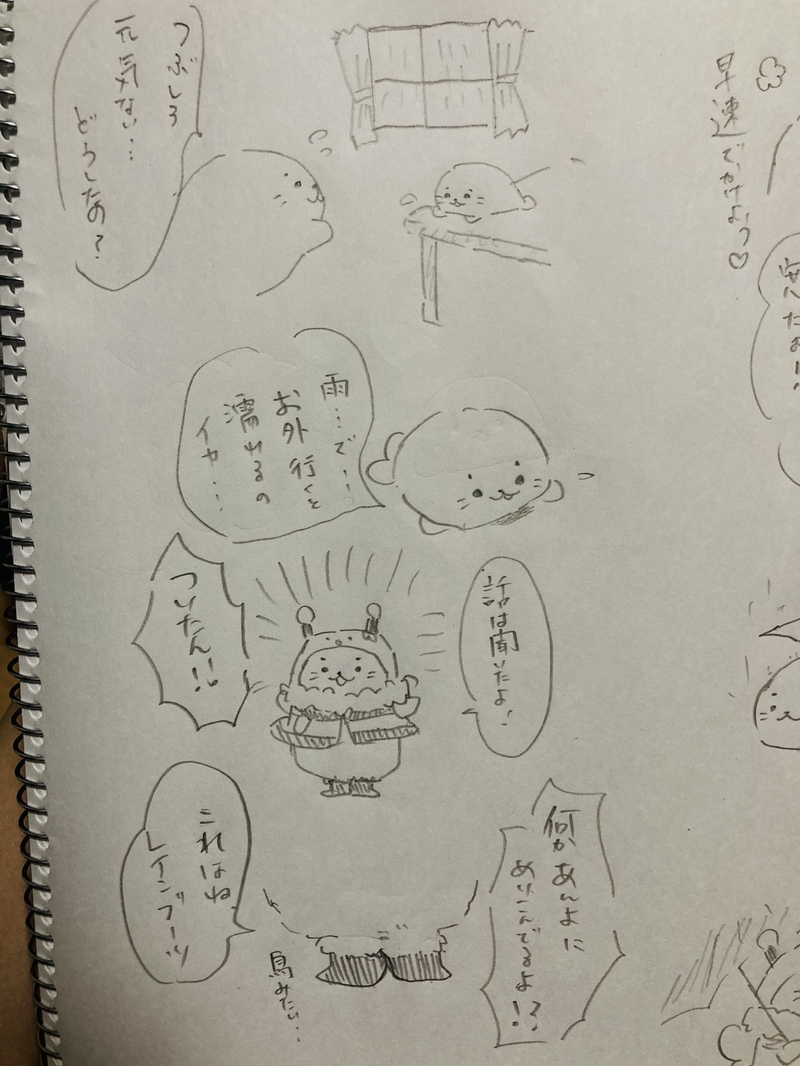 つぶしろ
元気ない…
どうしたの？
雨…で…
お外行くと
濡れるの
イヤ…
話は聞いたよ！
ついたん！！
何かあんよに
めりこんでるよ！？
これはね
レインブーツ
鳥みたい…
早速でかけよっ♡